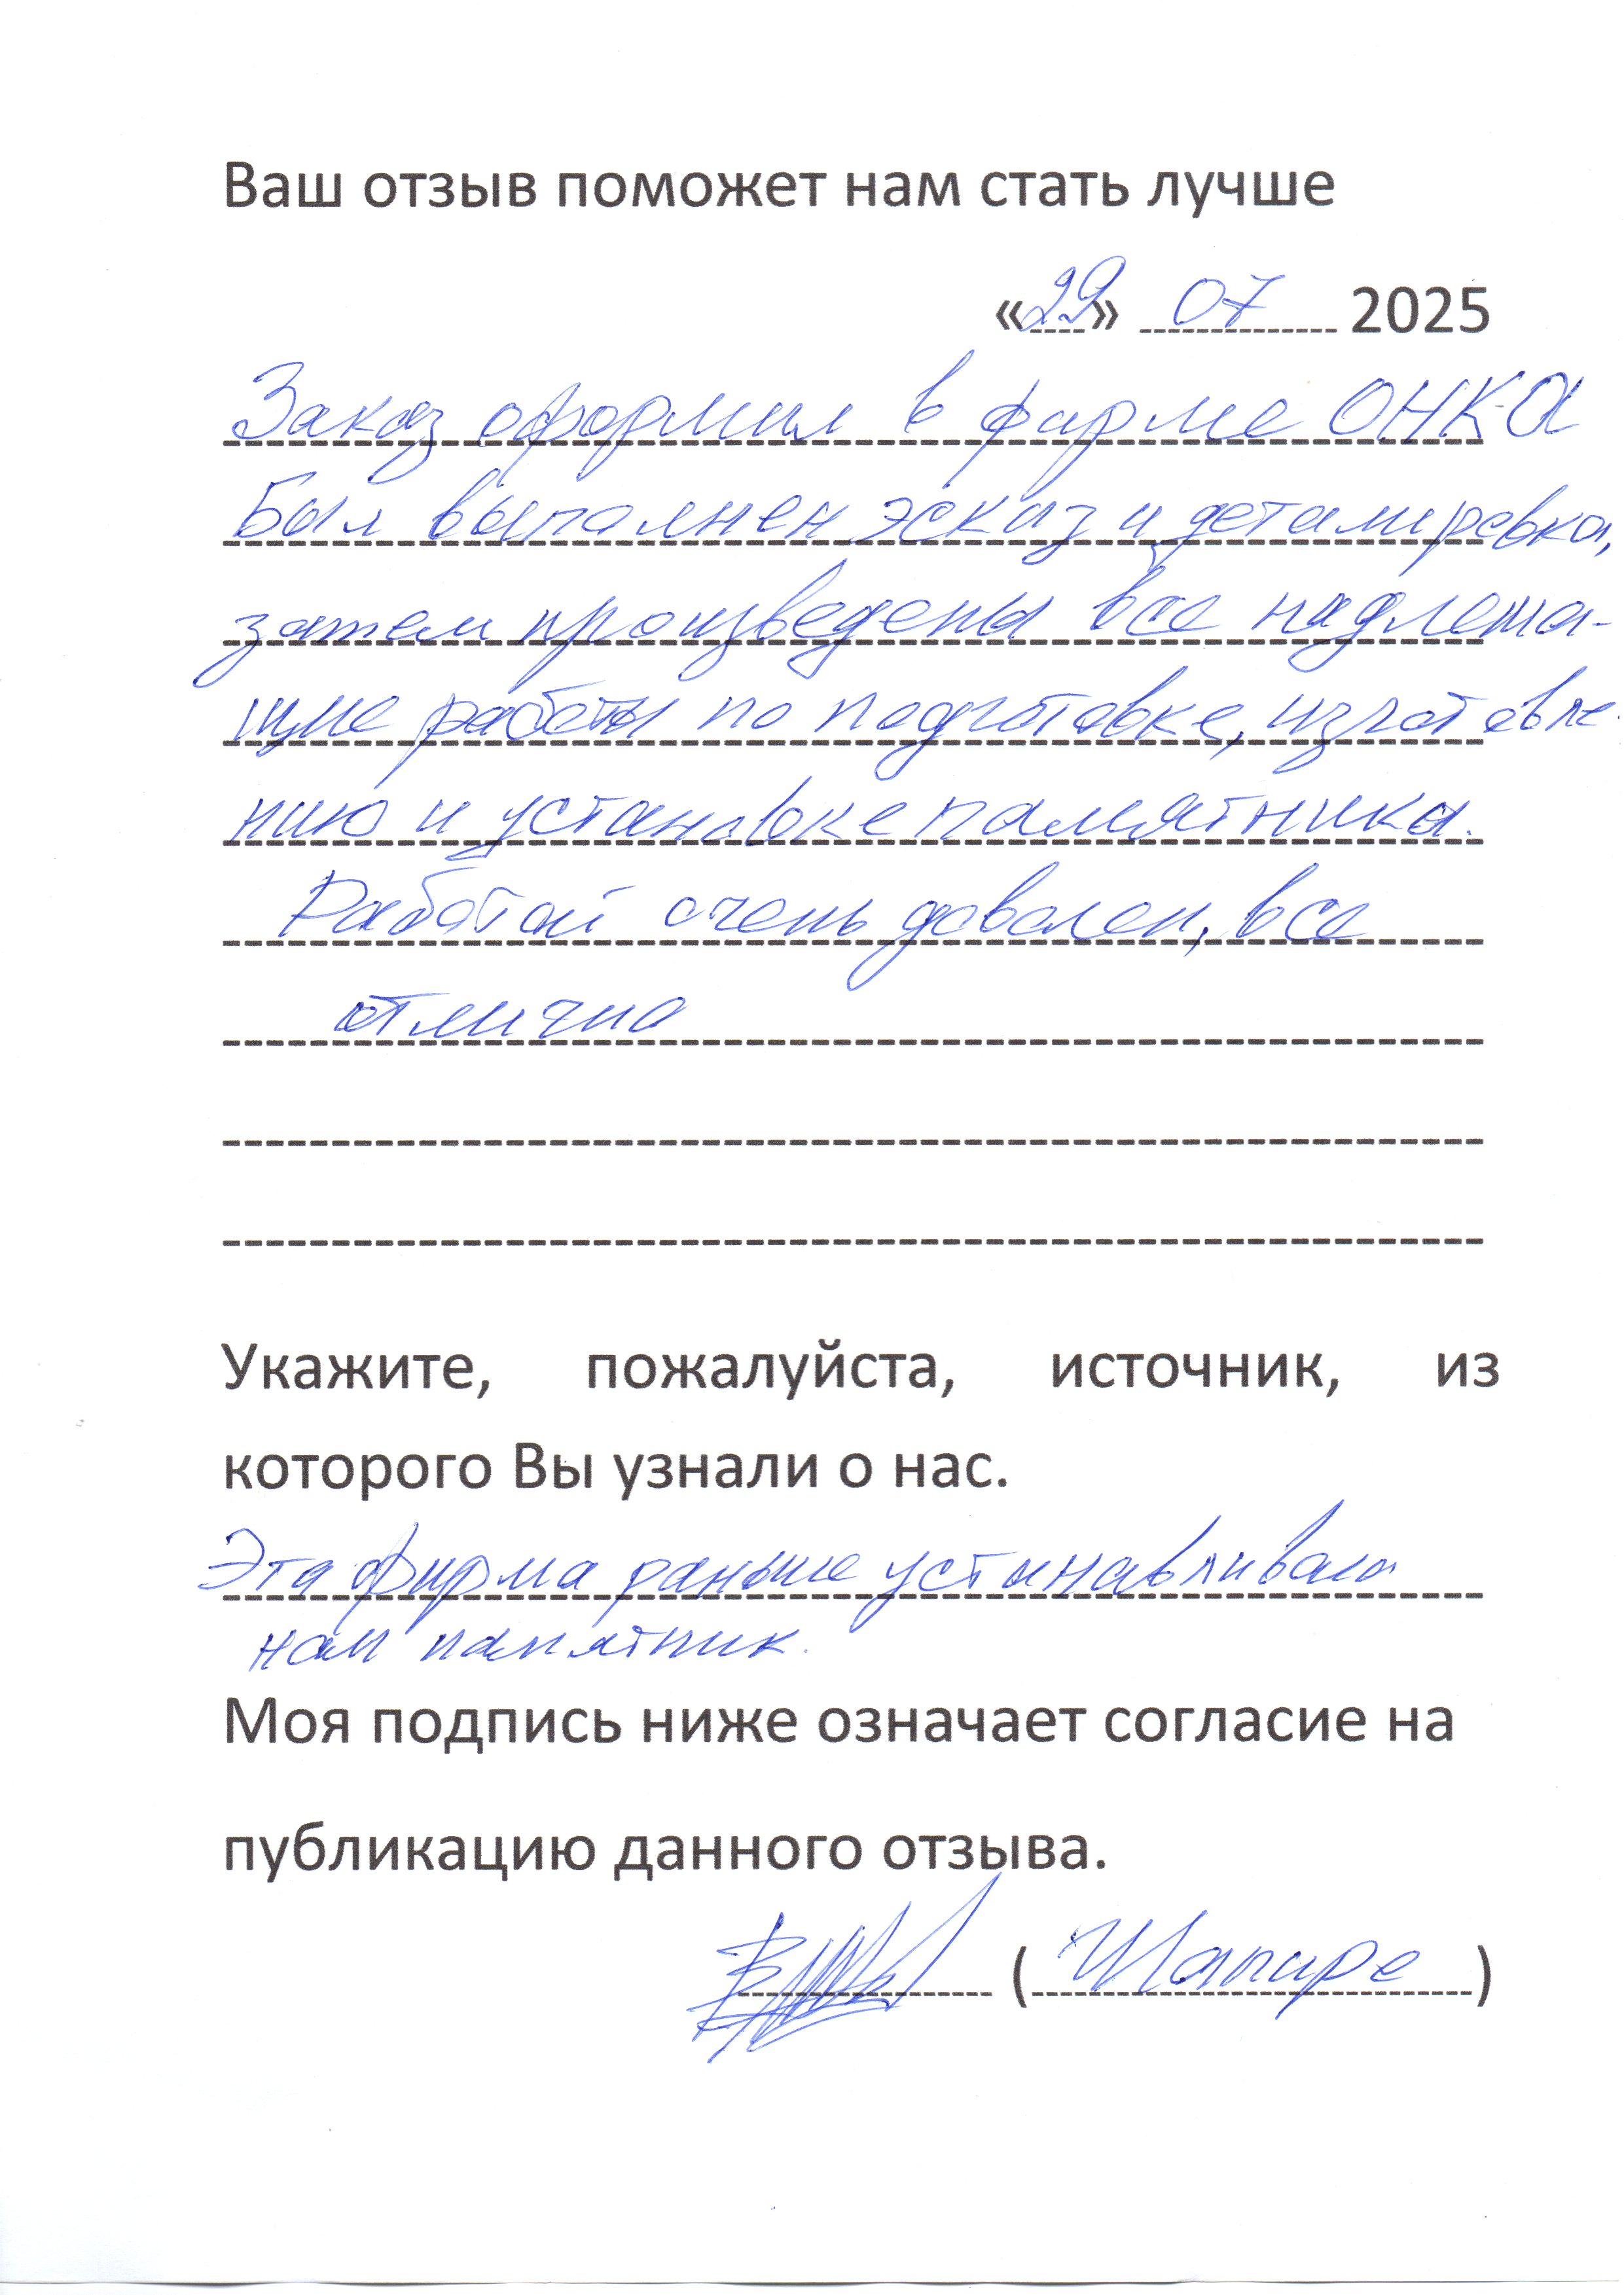 Ваш отзыв поможет нам стать лучше
«29» 07 2025
Заказ оформил в фирме ОНИКА
Был выполнен эскиз и деталировка,
затем произведены все надлежа-
щие работы по подготовке, изготовле-
нию и установке памятника.
Работой очень доволен, все
отлично
Укажите, пожалуйста, источник, из
которого Вы узнали о нас.
Эта фирма раньше устанавливала
нам памятник.
Моя подпись ниже означает согласие на
публикацию данного отзыва.
(Шапиро)